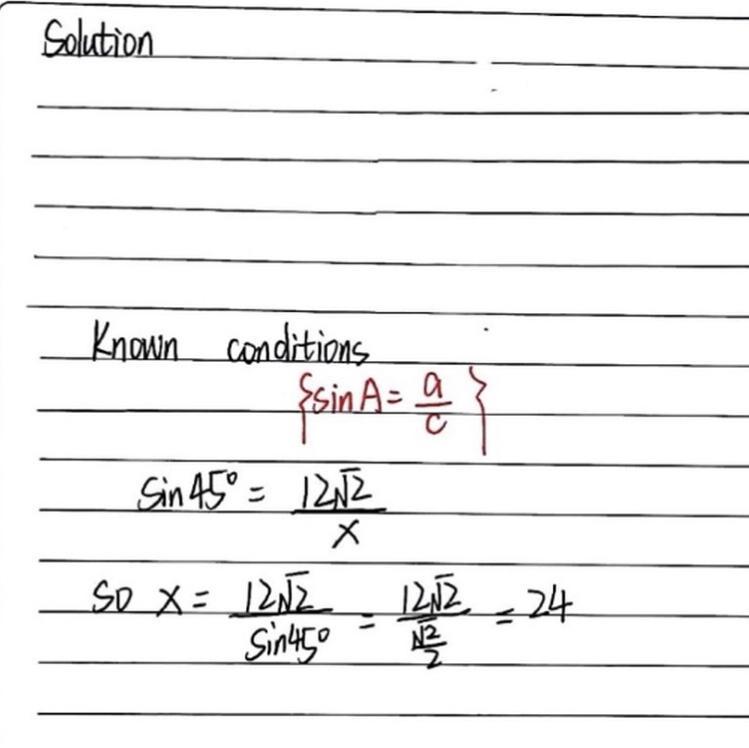 Solution
Known conditions
{sin A = a/c}
Sin 45° = 12√2/x
So x = 12√2/Sin45° = 12√2/(√2/2) = 24